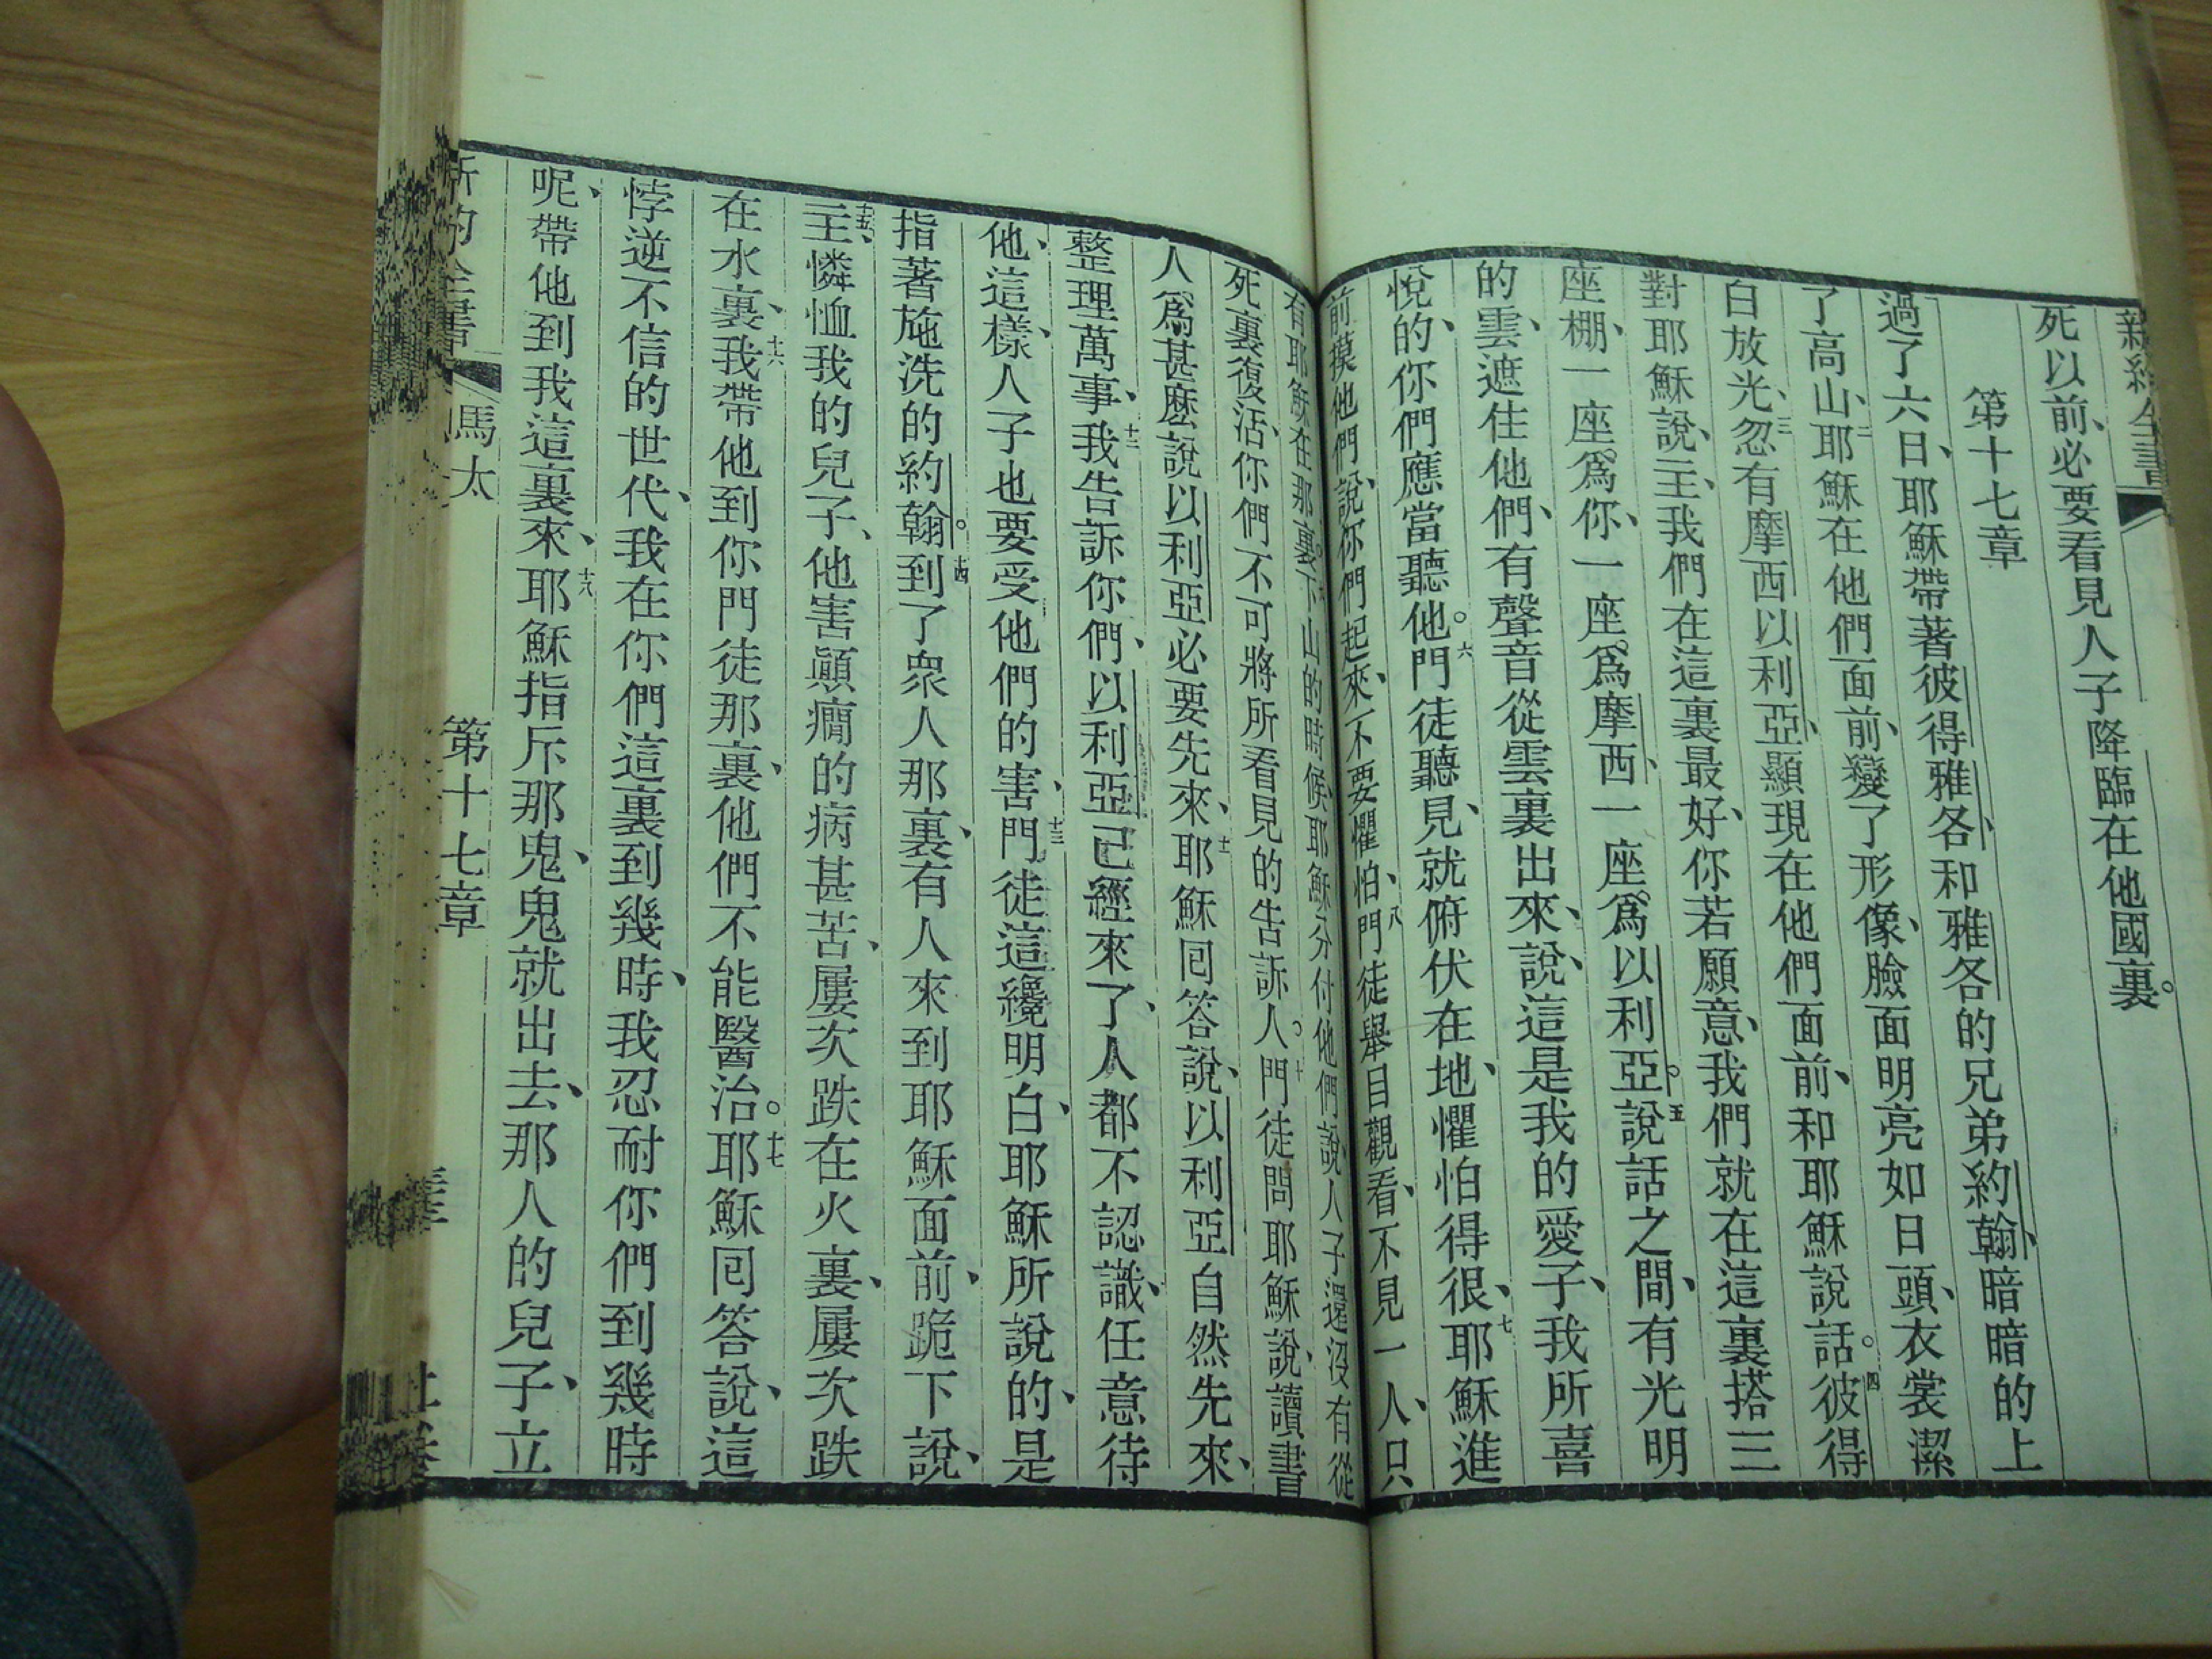 死以前、必要看見人子降臨在他國裏。
第十七章
過了六日、耶穌帶著彼得雅各、和雅各的兄弟約翰、暗暗的上
了高山、二耶穌在他們面前、變了形像、臉面明亮如日頭、衣裳潔
白放光、三忽有摩西以利亞、顯現在他們面前、和耶穌說話。四彼得
對耶穌說、主、我們在這裏最好、你若願意、我們就在這裏搭三
座棚、一座爲你、一座爲摩西、一座爲以利亞。五說話之間、有光明
的雲、遮住他們、有聲音從雲裏出來、說、這是我的愛子、我所喜
悅的、你們應當聽他。六門徒聽見、就俯伏在地、懼怕得很、七耶穌進
前摸他們、說、你們起來、不要懼怕、八門徒舉目觀看、不見一人、只
有耶穌在那裏。下山的時候、耶穌分付他們說、人子還沒有從
死裏復活、你們不可將所看見的告訴人。十門徒問耶穌說、讀書
人爲甚麽說以利亞必要先來、十一耶穌回答說、以利亞自然先來、
整理萬事、十二我告訴你們、以利亞已經來了、人都不認識、任意待
他、這樣、人子也要受他們的害、十三門徒這纔明白、耶穌所說的、是
指著施洗的約翰。十四到了衆人那裏、有人來到耶穌面前、跪下說、
十五主、憐恤我的兒子、他害顚癇的病甚苦、屢次跌在火裏、屢次跌
在水裏、十六我帶他到你門徒那裏、他們不能醫治。十七耶穌回答說、這
悖逆不信的世代、我在你們這裏到幾時、我忍耐你們到幾時
呢、帶他到我這裏來、十八耶穌指斥那鬼、鬼就出去、那人的兒子、立
馬太 第十七章